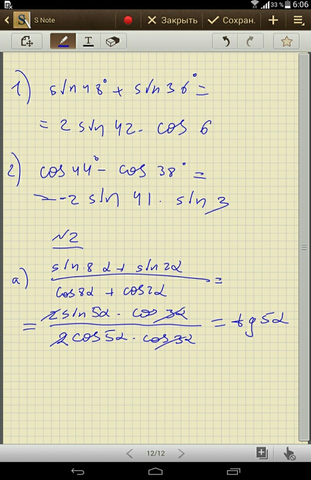 33 % 6:06
S Note Закрыть Сохран.
1) sin 48° + sin 36° =
= 2 sin 42 · cos 6
2) cos 44° - cos 38° =
= -2 sin 41 · sin 3
N2
a) sin 8α + sin 2α
cos 8α + cos 2α =
= 2 sin 5α · cos 3α
2 cos 5α · cos 3α = tg 5α
12/12